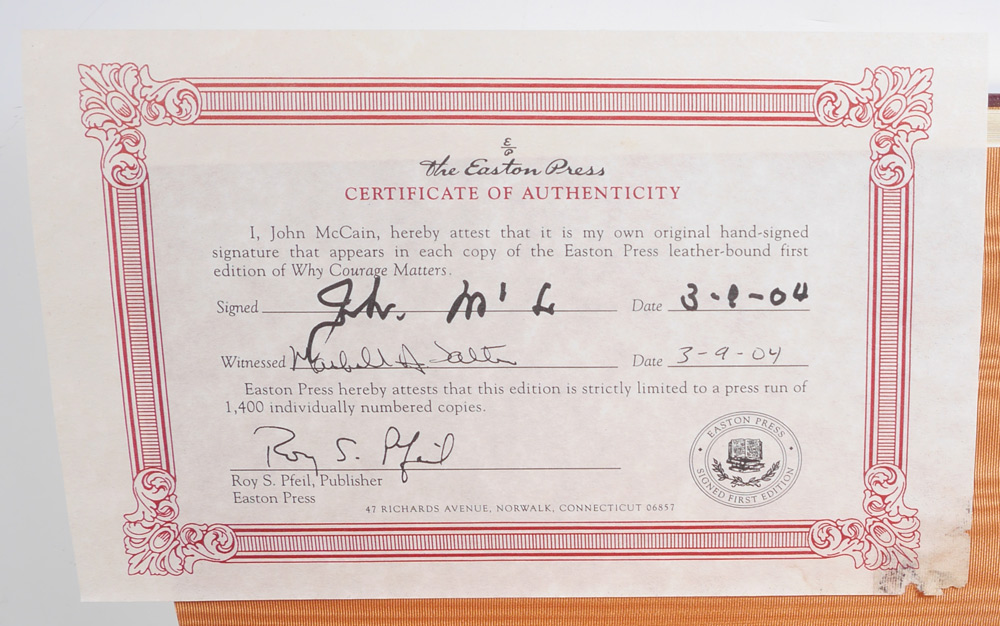 E
P
The Easton Press
CERTIFICATE OF AUTHENTICITY
I, John McCain, hereby attest that it is my own original hand-signed
signature that appears in each copy of the Easton Press leather-bound first
edition of Why Courage Matters.
Signed Date 3-9-04
Witnessed Date 3-9-04
Easton Press hereby attests that this edition is strictly limited to a press run of
1,400 individually numbered copies.
Roy S. Pfeil
Roy S. Pfeil, Publisher
Easton Press
EASTON PRESS
SIGNED FIRST EDITION
47 RICHARDS AVENUE, NORWALK, CONNECTICUT 06857